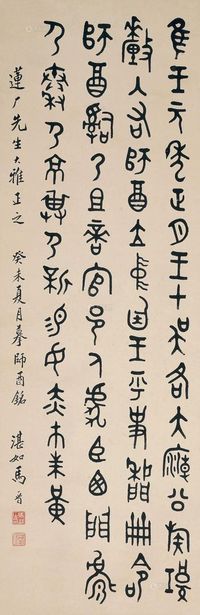 隹王元年正月王才吳各大廟公族
釐入右師酉立中廷王乎史冊命
師酉嗣乃且啻官邑人虎臣西門夷
夷秦夷京夷畁夷新易女赤市朱黃
蓮广先生大雅正之 癸未夏月摹師酉銘 湛如馬晉